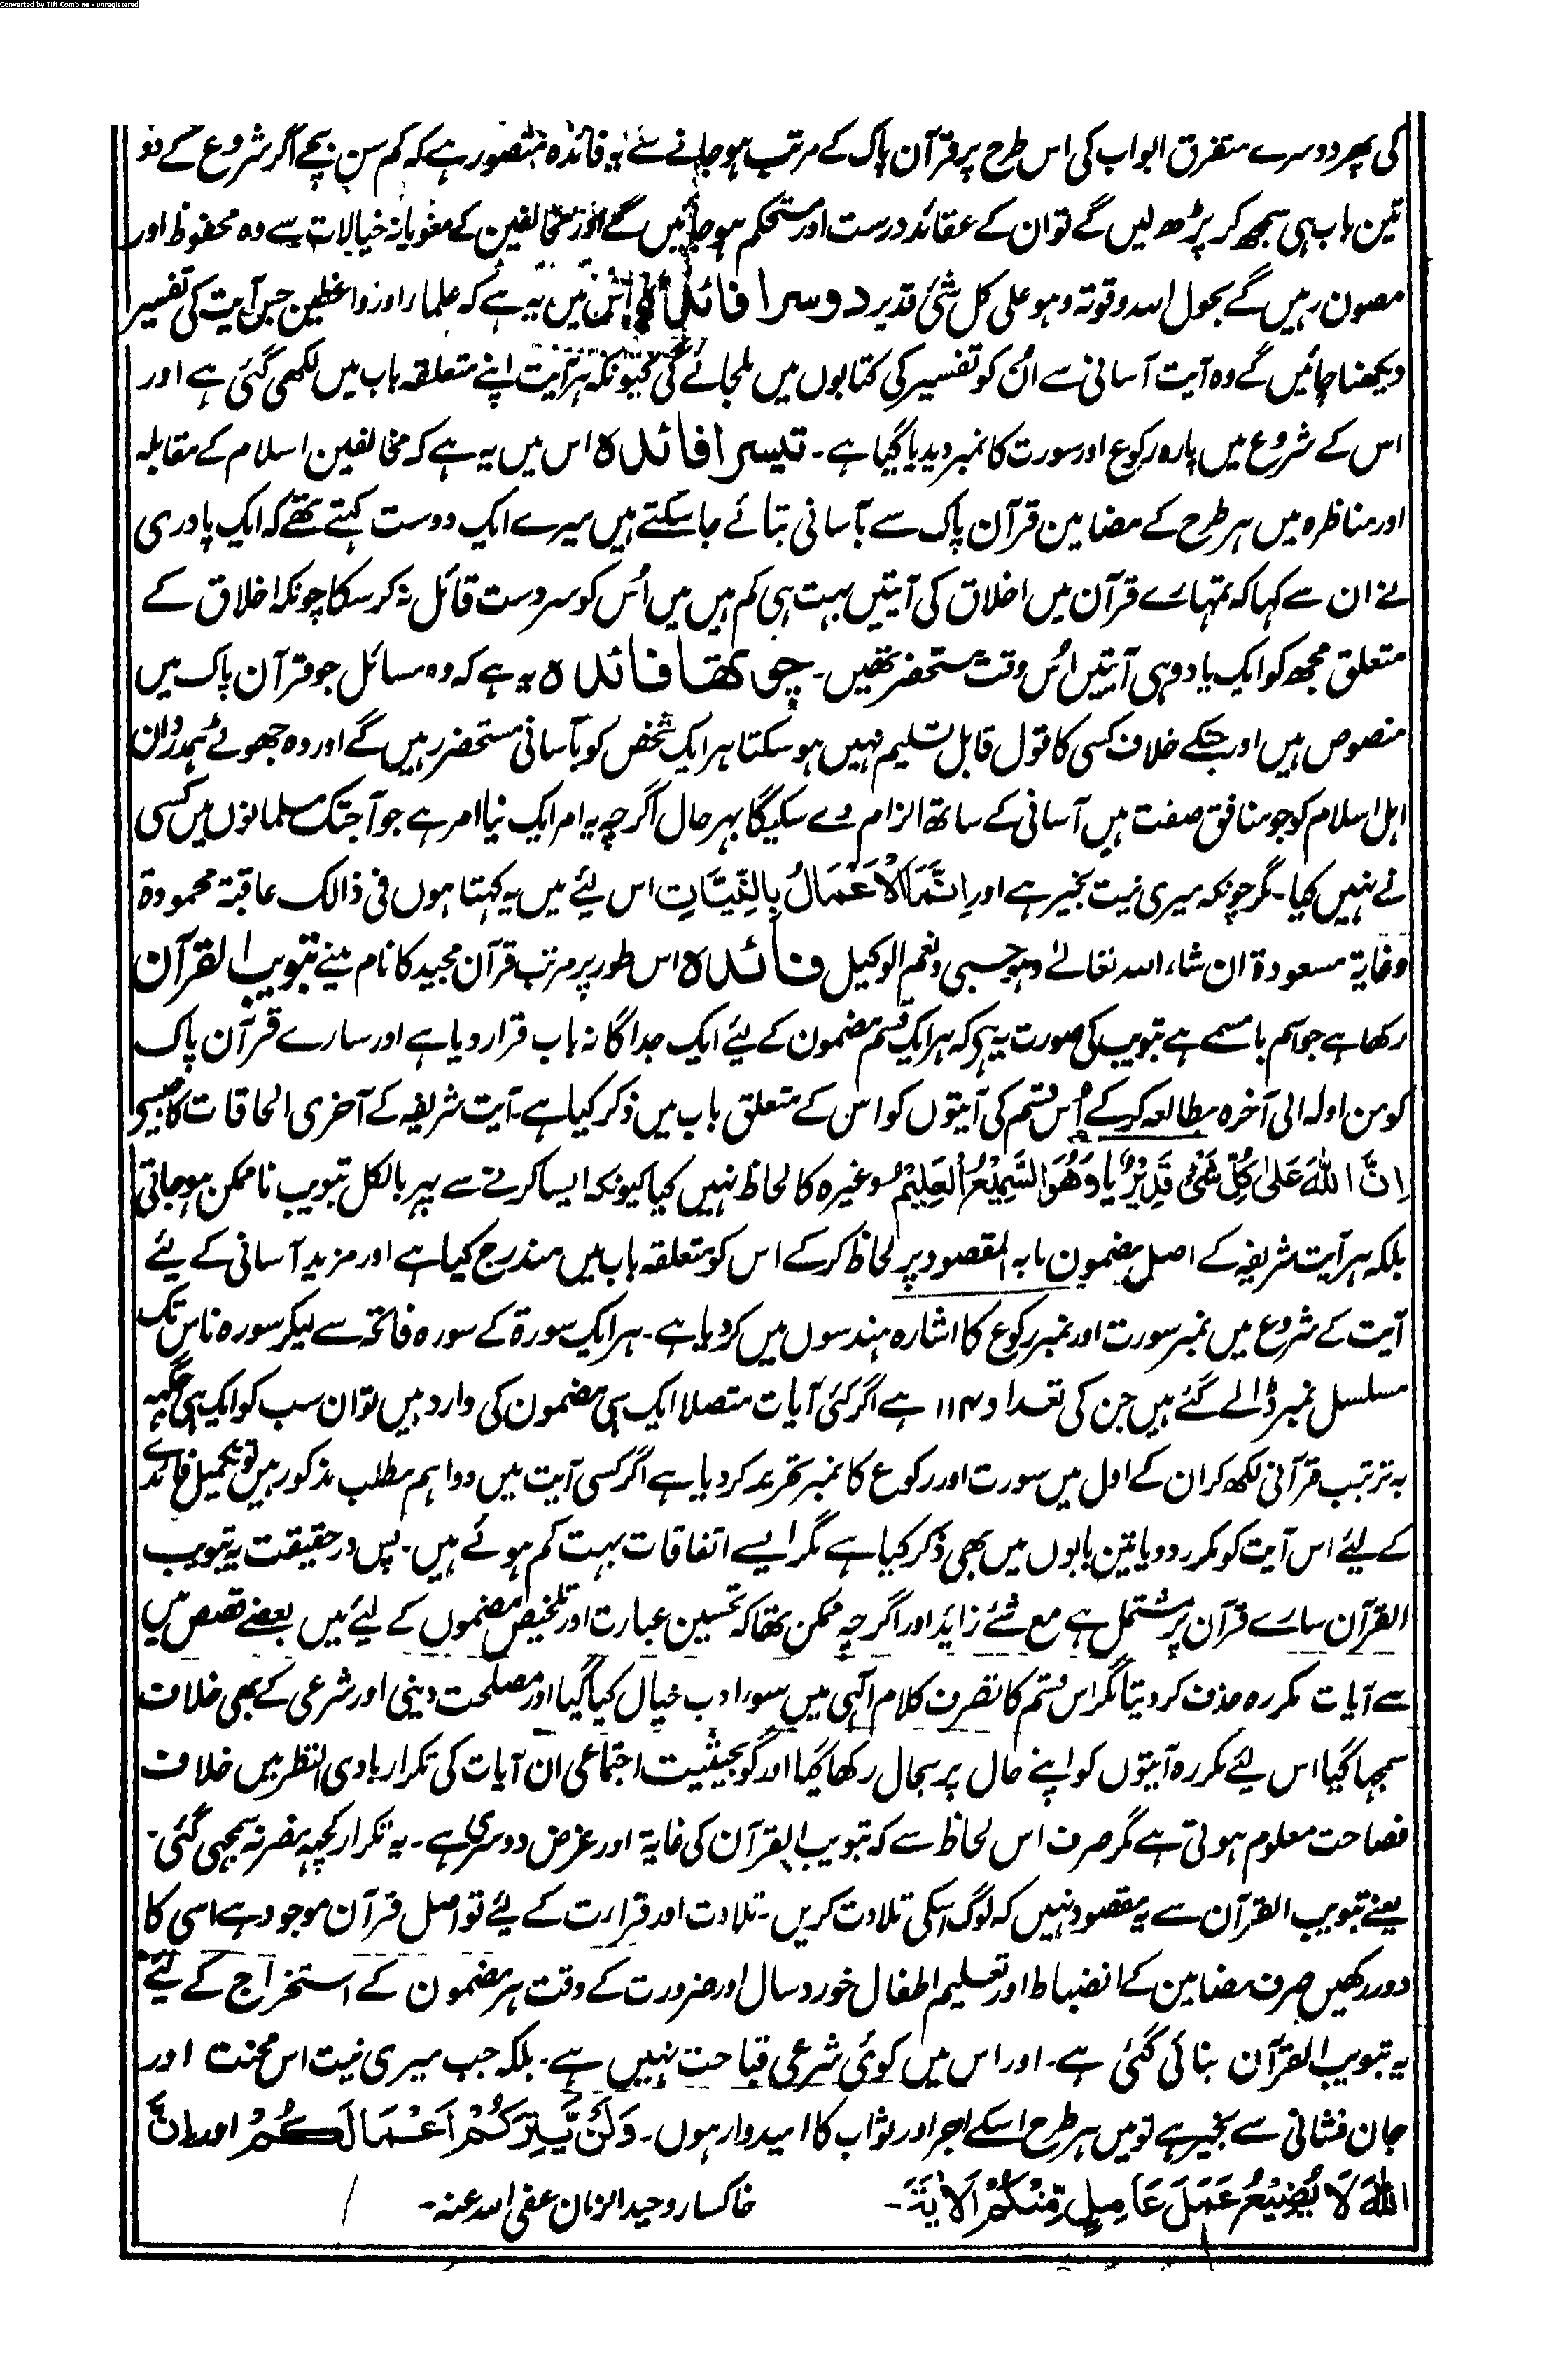 Converted by Tiff Combine - unregistered
کی پھر دوسرے متفرق ابواب کی اس طرح پر قرآن پاک کے مرتب ہو جانے سے یہ فائدہ متصور ہے کہ کم سن بچے اگر شروع کے دو
تین باب ہی سمجھ کر پڑھ لیں گے تو ان کے عقائد درست اور مستحکم ہو جائیں گے اور مخالفین کے مغویانہ خیالات سے وہ محفوظ اور
مصون رہیں گے بحول اللہ وقوتہ وہو علی کل شئ قدیر دوسرا فائدہ اس میں یہ ہے کہ علماء اور واعظین جس آیت کی تفسیر
دیکھنا چاہیں گے وہ آیت آسانی سے اُن کو تفسیر کی کتابوں میں ملجائے گی کیونکہ ہر آیت اپنے متعلقہ باب میں لکھی گئی ہے اور
اس کے شروع میں پارہ رکوع اور سورت کا نمبر دیدیا گیا ہے۔ تیسرا فائدہ اس میں یہ ہے کہ مخالفین اسلام کے مقابلہ
اور مناظرہ میں ہر طرح کے مضامین قرآن پاک سے بآسانی بتائے جا سکتے ہیں میرے ایک دوست کہتے تھے کہ ایک پادری
نے ان سے کہا کہ تمہارے قرآن میں اخلاق کی آیتیں بہت ہی کم ہیں میں اُس کو سردست قائل نہ کر سکا چونکہ اخلاق کے
متعلق مجھ کو ایک یا دو ہی آیتیں اُس وقت مستحضر تھیں۔ چوتھا فائدہ یہ ہے کہ وہ مسائل جو قرآن پاک میں
منصوص ہیں اور جنکے خلاف کسی کا قول قابل تسلیم نہیں ہو سکتا ہر ایک شخص کو بآسانی مستحضر رہیں گے اور وہ جھوٹے ہمدردان
اہل اسلام کو جو منافق صفت ہیں آسانی کے ساتھ الزام دے سکیگا بہر حال اگرچہ یہ امر ایک نیا امر ہے جو آجتک مسلمانوں میں کسی
نے نہیں کیا۔ مگر چونکہ میری نیت بخیر ہے اور اِنَّمَا الْاَعْمَالُ بِالنِّیَّاتِ اس لیئے میں یہ کہتا ہوں فی ذالک عاقبۃ محمودۃ
وغایۃ مسعودۃ ان شاء اللہ تعالےٰ وہو حسبی ونعم الوکیل فائدہ اس طور پر مرتب قرآن مجید کا نام مینے تبویب القرآن
رکھا ہے جو اسم بامسمے ہے تبویب کی صورت یہ ہی کہ ہر ایک قسم مضمون کے لیئے ایک جداگانہ باب قرار دیا ہے اور سارے قرآن پاک
کو من اولہ الی آخرہ مطالعہ کر کے اُس قسم کی آیتوں کو اس کے متعلق باب میں ذکر کیا ہے۔ آیت شریفہ کے آخری الحاقات کا جیسے
اِنَّ اللّٰهَ عَلٰی کُلِّ شَیْئٍ قَدِیْرٌ یا وَهُوَ السَّمِیْعُ الْعَلِیْمُ وغیرہ کا لحاظ نہیں کیا کیونکہ ایسا کرنے سے پہر بالکل تبویب ناممکن ہو جاتی
بلکہ ہر آیت شریفہ کے اصل مضمون مابہ المقصود پر لحاظ کر کے اس کو متعلقہ باب میں مندرج کیا ہے اور مزید آسانی کے لیئے
آیت کے شروع میں نمبر سورت اور نمبر رکوع کا اشارہ ہندسوں میں کر دیا ہے۔ ہر ایک سورۃ کے سورہ فاتحہ سے لیکر سورہ ناس تک
مسلسل نمبر ڈالے گئے ہیں جن کی تعداد ۱۱۴ ہے اگر کئی آیات متصلا ایک ہی مضمون کی وارد ہیں تو ان سب کو ایک ہی جگہہ
بہ ترتیب قرآنی لکھ کر ان کے اول میں سورت اور رکوع کا نمبر تحریر کر دیا ہے اگر کسی آیت میں دو اہم مطلب مذکور ہیں تو تکمیل فائدے
کے لیئے اس آیت کو مکرر دو یا تین بابوں میں بھی ذکر کیا ہے مگر ایسے اتفاقات بہت کم ہوئے ہیں۔ پس درحقیقت یہ تبویب
القرآن سارے قرآن پر مشتمل ہے مع شئے زاید اور اگرچہ ممکن تھا کہ تحسین عبارت اور تلخیص مضموں کے لیئے میں بعضے قصص میں
سے آیات مکررہ حذف کر دیتا مگر اس قسم کا تصرف کلام الٰہی میں سوء ادب خیال کیا گیا اور مصلحت دینی اور شرعی کے بھی خلاف
سمجہا گیا اس لیئے مکررہ آیتوں کو اپنے حال پر بحال رکھا گیا اور گو بحیثیت اجتماعی ان آیات کی تکرار بادی النظر میں خلاف
فصاحت معلوم ہوتی ہے مگر صرف اس لحاظ سے کہ تبویب القرآن کی غایۃ اور غرض دوسری ہے۔ یہ تکرار کچہہ مضر نہ سمجہی گئی۔
یعنے تبویب القرآن سے یہ مقصود نہیں کہ لوگ اسکی تلاوت کریں۔ تلاوت اور قراءت کے لیئے تو اصل قرآن موجود ہے اسی کا
دور رکھیں صرف مضامین کے انضباط اور تعلیم اطفال خورد سال اور ضرورت کے وقت ہر مضمون کے استخراج کے لیئے
یہ تبویب القرآن بنائی گئی ہے۔ اور اس میں کوئی شرعی قباحت نہیں ہے۔ بلکہ جب میری نیت اس محنت اور
جان فشانی سے بخیر ہے تو میں ہر طرح اسکے اجر اور ثواب کا امیدوار ہوں۔ وَلَنْ یَّتِرَکُمْ اَعْمَالَکُمْ اور اِنَّ
اللّٰهَ لَا یُضِیْعُ عَمَلَ عَامِلٍ مِّنْکُمْ الْاٰیَةَ۔ خاکسار وحید الزمان عفی اللہ عنہ۔